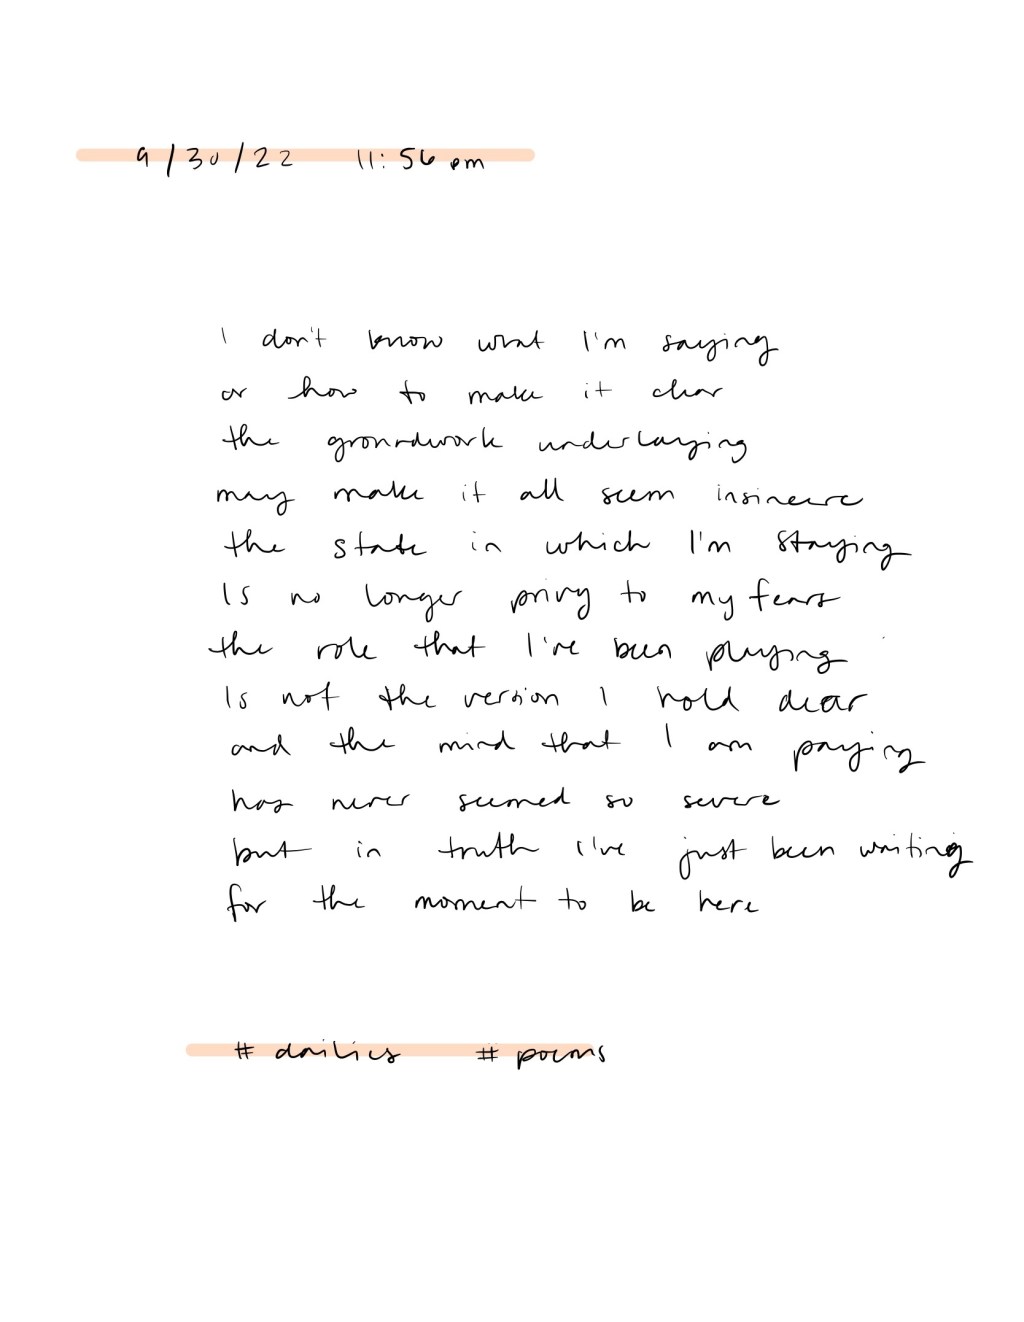 9/30/22 11:56 pm
I don't know what I'm saying
or how to make it clear
the groundwork underlaying
may make it all seem insincere
the state in which I'm staying
Is no longer privy to my fears
the role that I've been playing
Is not the version I hold dear
and the mind that I am paying
has never seemed so severe
but in truth I've just been waiting
for the moment to be here
# dailies # poems